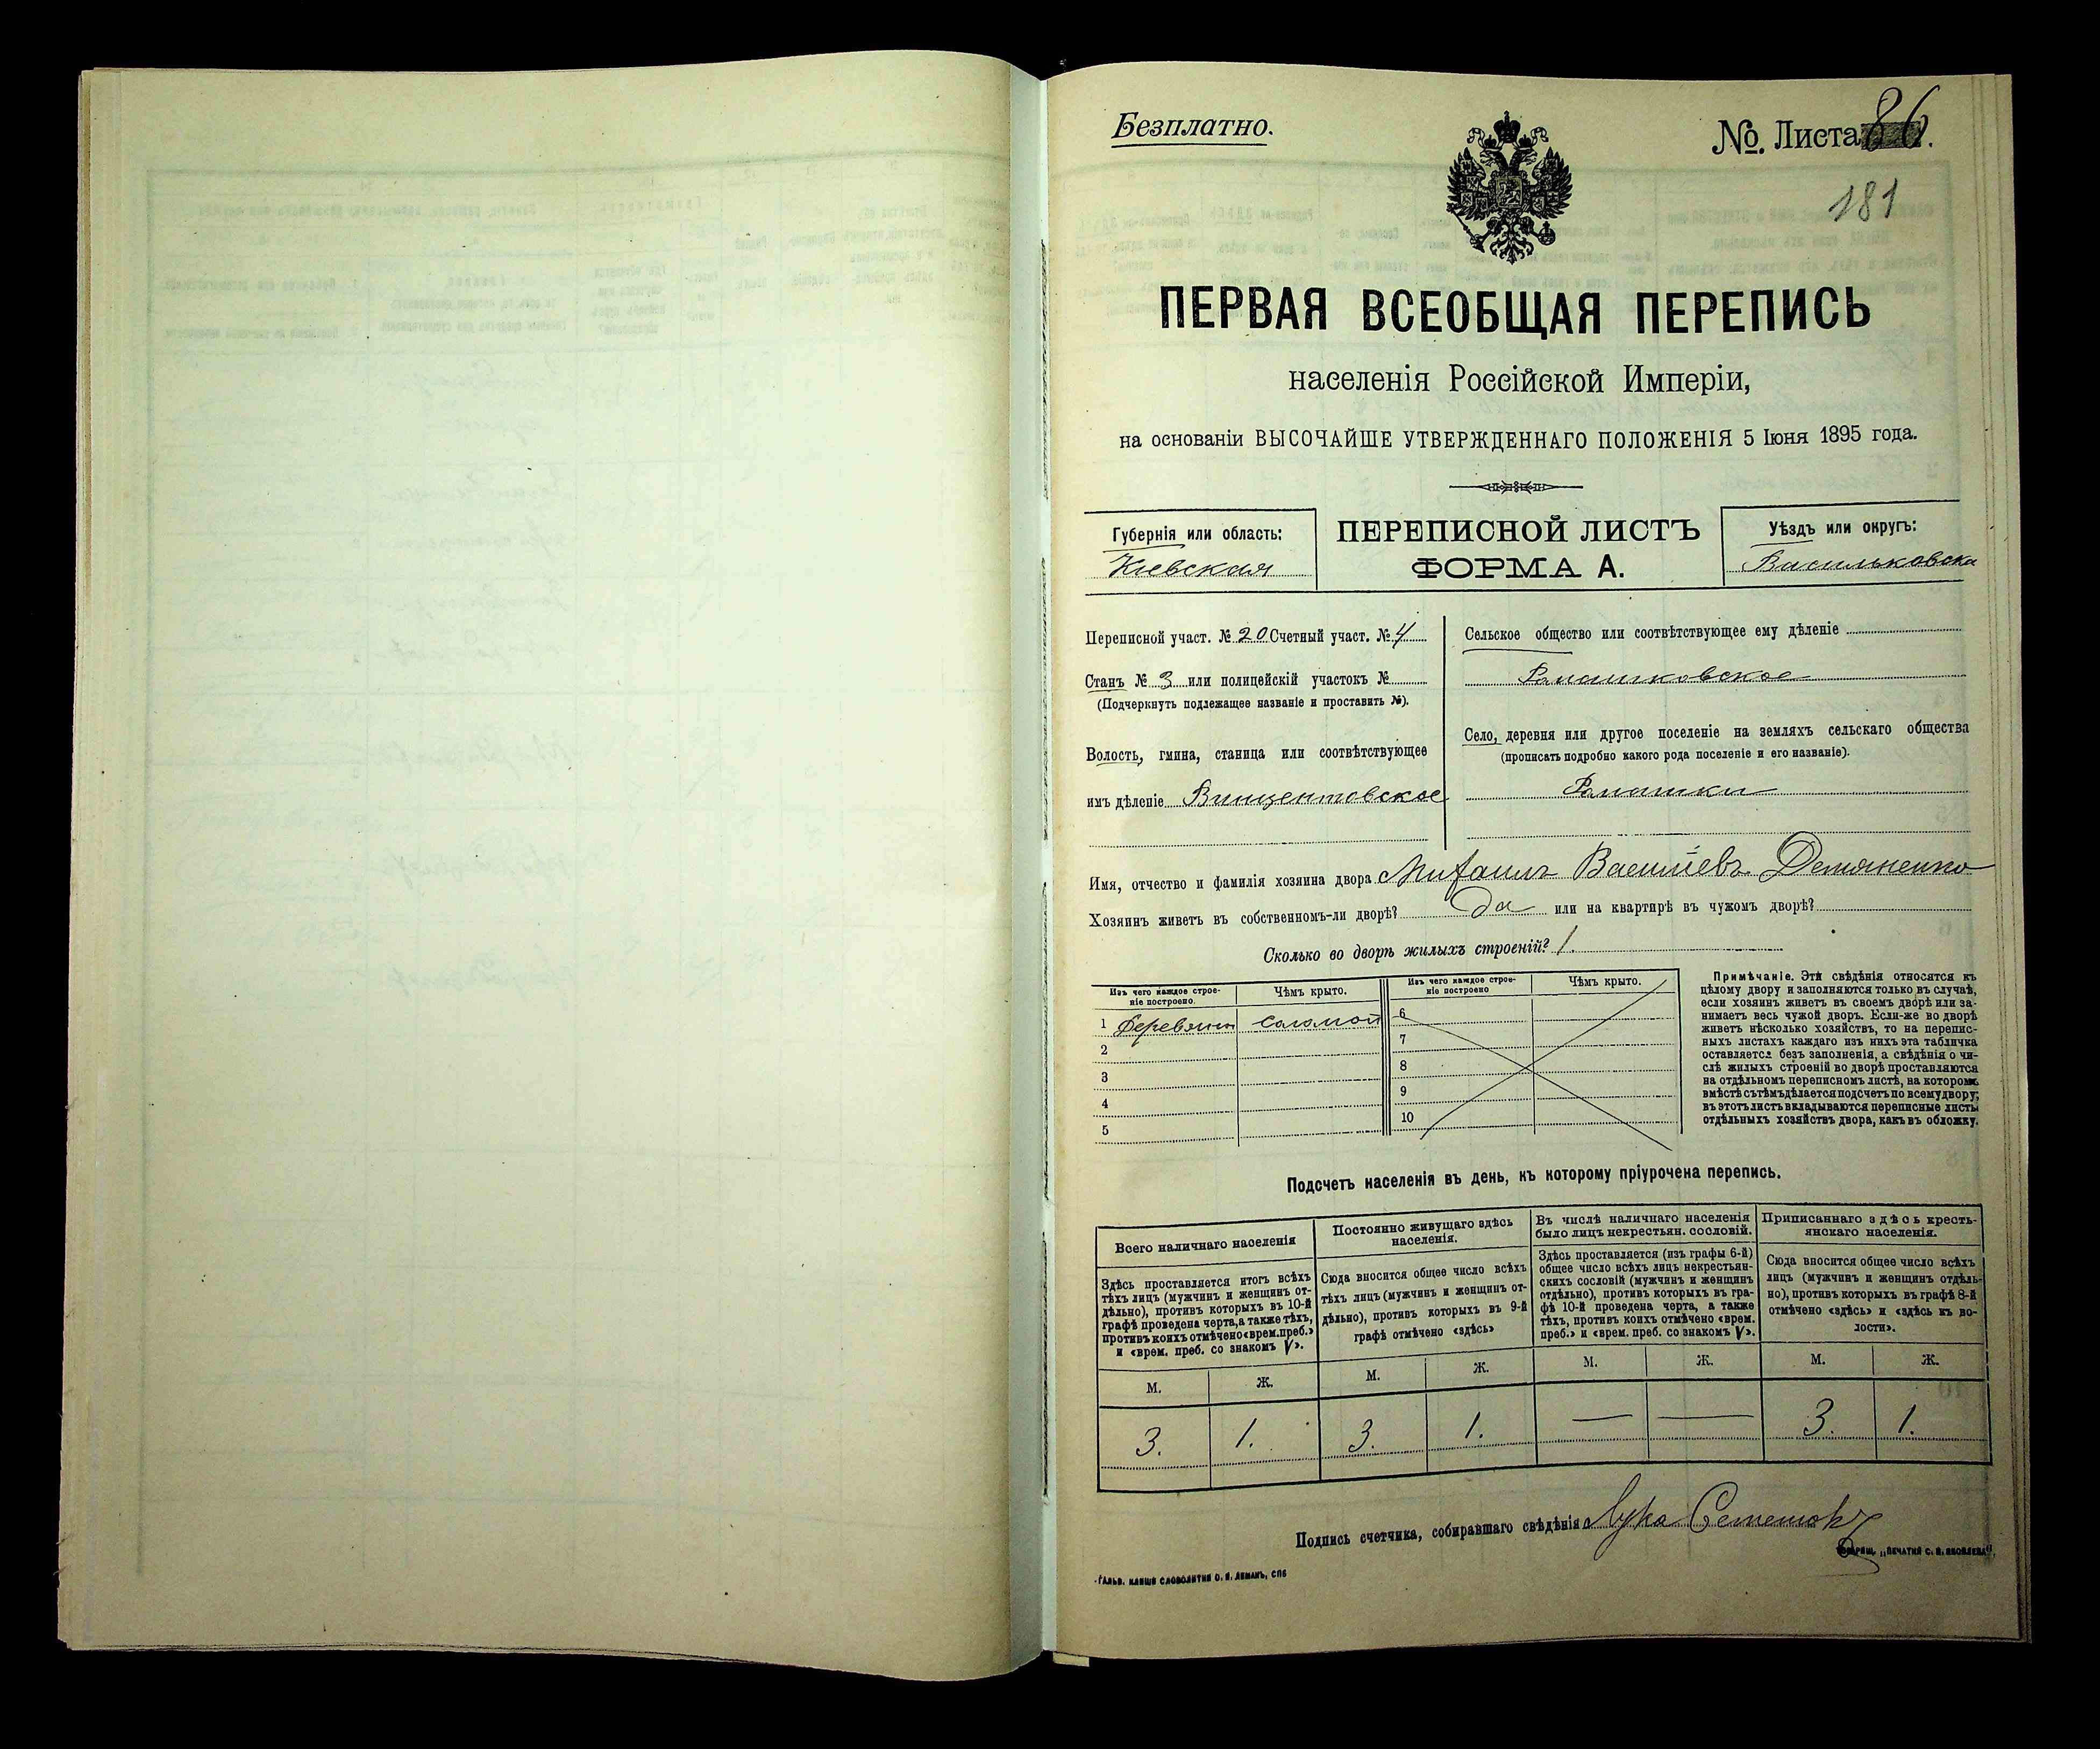 Безплатно.
№. Листа 86.
181
ПЕРВАЯ ВСЕОБЩАЯ ПЕРЕПИСЬ
населенія Россійской Имперіи,
на основаніи ВЫСОЧАЙШЕ УТВЕРЖДЕННАГО ПОЛОЖЕНІЯ 5 Іюня 1895 года.
Губернія или область:
Кіевская
ПЕРЕПИСНОЙ ЛИСТЪ
ФОРМА А.
Уѣздъ или округъ:
Васильковска
Переписной участ. № 20 Счетный участ. № 4
Станъ № 3 или полицейскій участокъ №
(Подчеркнуть подлежащее названіе и проставить №).
Волость, гмина, станица или соотвѣтствующее
имъ дѣленіе Винцентовское
Сельское общество или соотвѣтствующее ему дѣленіе
Ромашковское
Село, деревня или другое поселеніе на земляхъ сельскаго общества
(прописать подробно какого рода поселеніе и его названіе).
Ромашки
Имя, отчество и фамилія хозяина двора Михаилъ Васильевъ Демяненко
Хозяинъ живетъ въ собственномъ-ли дворѣ? Да или на квартирѣ въ чужомъ дворѣ?
Сколько во дворѣ жилыхъ строеній? 1.
Изъ чего каждое строе-
ніе построено.
Чѣмъ крыто.
1 Деревянн соломой
2
3
4
5
Изъ чего каждое строе-
ніе построено
Чѣмъ крыто.
6
7
8
9
10
Примѣчаніе. Эти свѣдѣнія относятся къ
цѣлому двору и заполняются только въ случаѣ,
если хозяинъ живетъ въ своемъ дворѣ или за-
нимаетъ весь чужой дворъ. Если-же во дворѣ
живетъ нѣсколько хозяйствъ, то на перепис-
ныхъ листахъ каждаго изъ нихъ эта табличка
оставляется безъ заполненія, а свѣдѣнія о чи-
слѣ жилыхъ строеній во дворѣ проставляются
на отдѣльномъ переписномъ листѣ, на которомъ
вмѣстѣ съ тѣмъ дѣлается подсчетъ по всему двору;
въ этотъ листъ вкладываются переписные листы
отдѣльныхъ хозяйствъ двора, какъ въ обложку.
Подсчетъ населенія въ день, къ которому пріурочена перепись.
Всего наличнаго населенія
Здѣсь проставляется итогъ всѣхъ
тѣхъ лицъ (мужчинъ и женщинъ от-
дѣльно), противъ которыхъ въ 10-й
графѣ проведена черта, а также тѣхъ,
противъ коихъ отмѣчено «врем. преб.»
и «врем. преб. со знакомъ V».
Постоянно живущаго здѣсь
населенія.
Сюда вносится общее число всѣхъ
тѣхъ лицъ (мужчинъ и женщинъ от-
дѣльно), противъ которыхъ въ 9-й
графѣ отмѣчено «здѣсь»
Въ числѣ наличнаго населенія
было лицъ некрестьян. сословій.
Здѣсь проставляется (изъ графы 6-й)
общее число всѣхъ лицъ некрестьян-
скихъ сословій (мужчинъ и женщинъ
отдѣльно), противъ которыхъ въ гра-
фѣ 10-й проведена черта, а также
тѣхъ, противъ коихъ отмѣчено «врем.
преб.» и «врем. преб. со знакомъ V».
Приписаннаго здѣсь кресть-
янскаго населенія.
Сюда вносится общее число всѣхъ
лицъ (мужчинъ и женщинъ отдѣль-
но), противъ которыхъ въ графѣ 8-й
отмѣчено «здѣсь» и «здѣсь къ во-
лости».
М. Ж. М. Ж. М. Ж. М. Ж.
3. 1. 3. 1. — — 3. 1.
Подпись счетчика, собиравшаго свѣдѣнія Лука
Товарищ. „ПЕЧАТНЯ С. П. ЯКОВЛЕВА“,
ГАЛЬВ. КЛИШЕ СЛОВОЛИТНИ О. И. ЛЕМАНЪ, СПБ